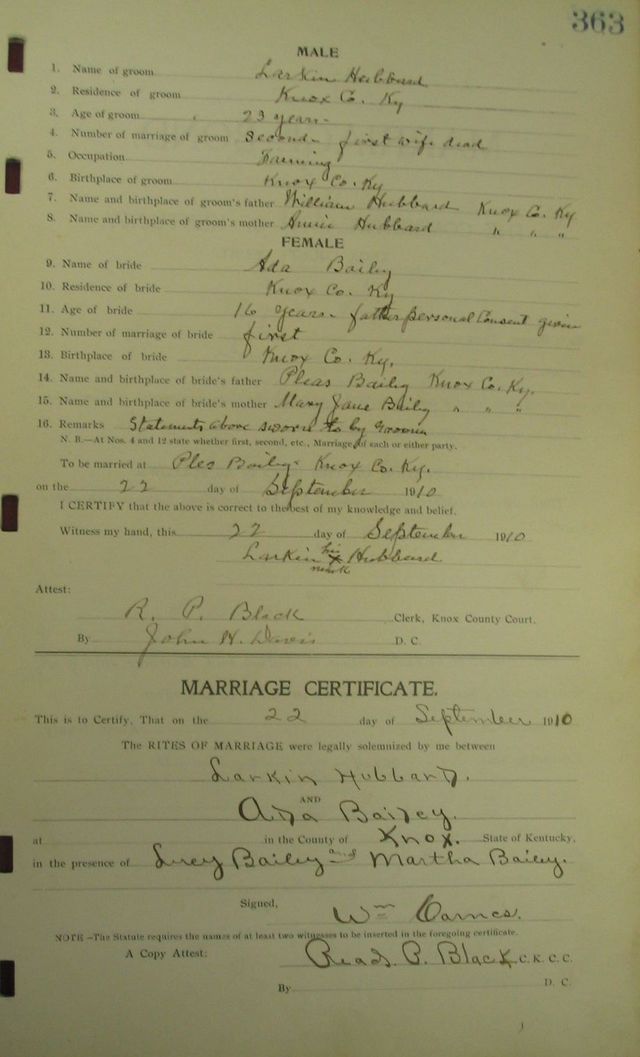 363
MALE
1. Name of groom Larkin Hubbard
2. Residence of groom Knox Co. Ky
3. Age of groom 23 years-
4. Number of marriage of groom Second- first wife dead
5. Occupation Farming
6. Birthplace of groom Knox Co. Ky
7. Name and birthplace of groom's father William Hubbard Knox Co. Ky
8. Name and birthplace of groom's mother Annie Hubbard " " "
FEMALE
9. Name of bride Ada Baily
10. Residence of bride Knox Co. Ky
11. Age of bride 16 years- father personal Consent given
12. Number of marriage of bride first
13. Birthplace of bride Knox Co. Ky.
14. Name and birthplace of bride's father Pleas Baily Knox Co. Ky.
15. Name and birthplace of bride's mother Mary Jane Baily " " "
16. Remarks Statements above sworn to by Groom
N. B.—At Nos. 4 and 12 state whether first, second, etc., Marriage of each or either party.
To be married at Ples Baily- Knox Co. Ky.
on the 22 day of September 1910
I CERTIFY that the above is correct to the best of my knowledge and belief.
Witness my hand, this 22 day of September 1910
Larkin his x mark Hubbard
Attest:
R. P. Black Clerk, Knox County Court.
By John H. Davis D. C.
MARRIAGE CERTIFICATE.
This is to Certify, That on the 22 day of September 1910
The RITES OF MARRIAGE were legally solemnized by me between
Larkin Hubbard.
AND
Ada Bailey.
at in the County of Knox. State of Kentucky,
in the presence of Lucy Bailey and Martha Bailey.
Signed, Wm
NOTE—The Statute requires the names of at least two witnesses to be inserted in the foregoing certificate.
A Copy Attest: Read. P. Black C. K. C. C.
By D. C.